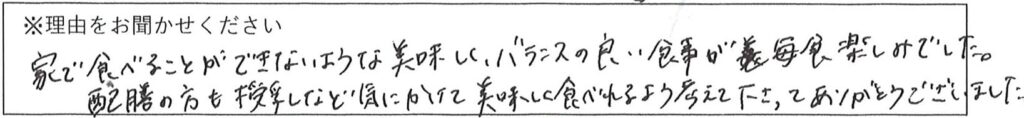 ※理由をお聞かせください
家で食べることができないような美味しく、バランスの良い食事が毎食楽しみでした。
配膳の方も授乳など気にかけて美味しく食べれるよう考えて下さってありがとうございました